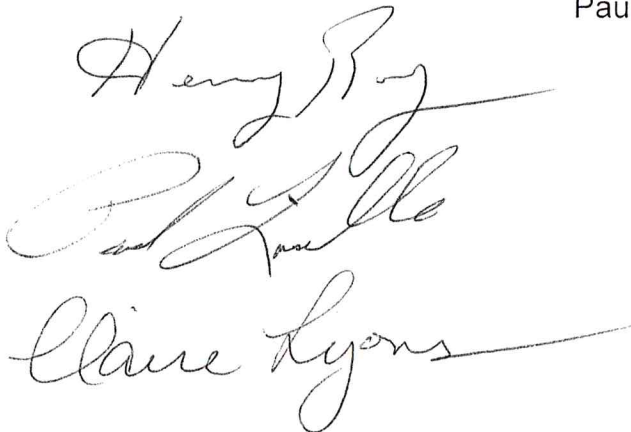 Pau
Henry Roy
Paul Loiselle
Claire Lyons